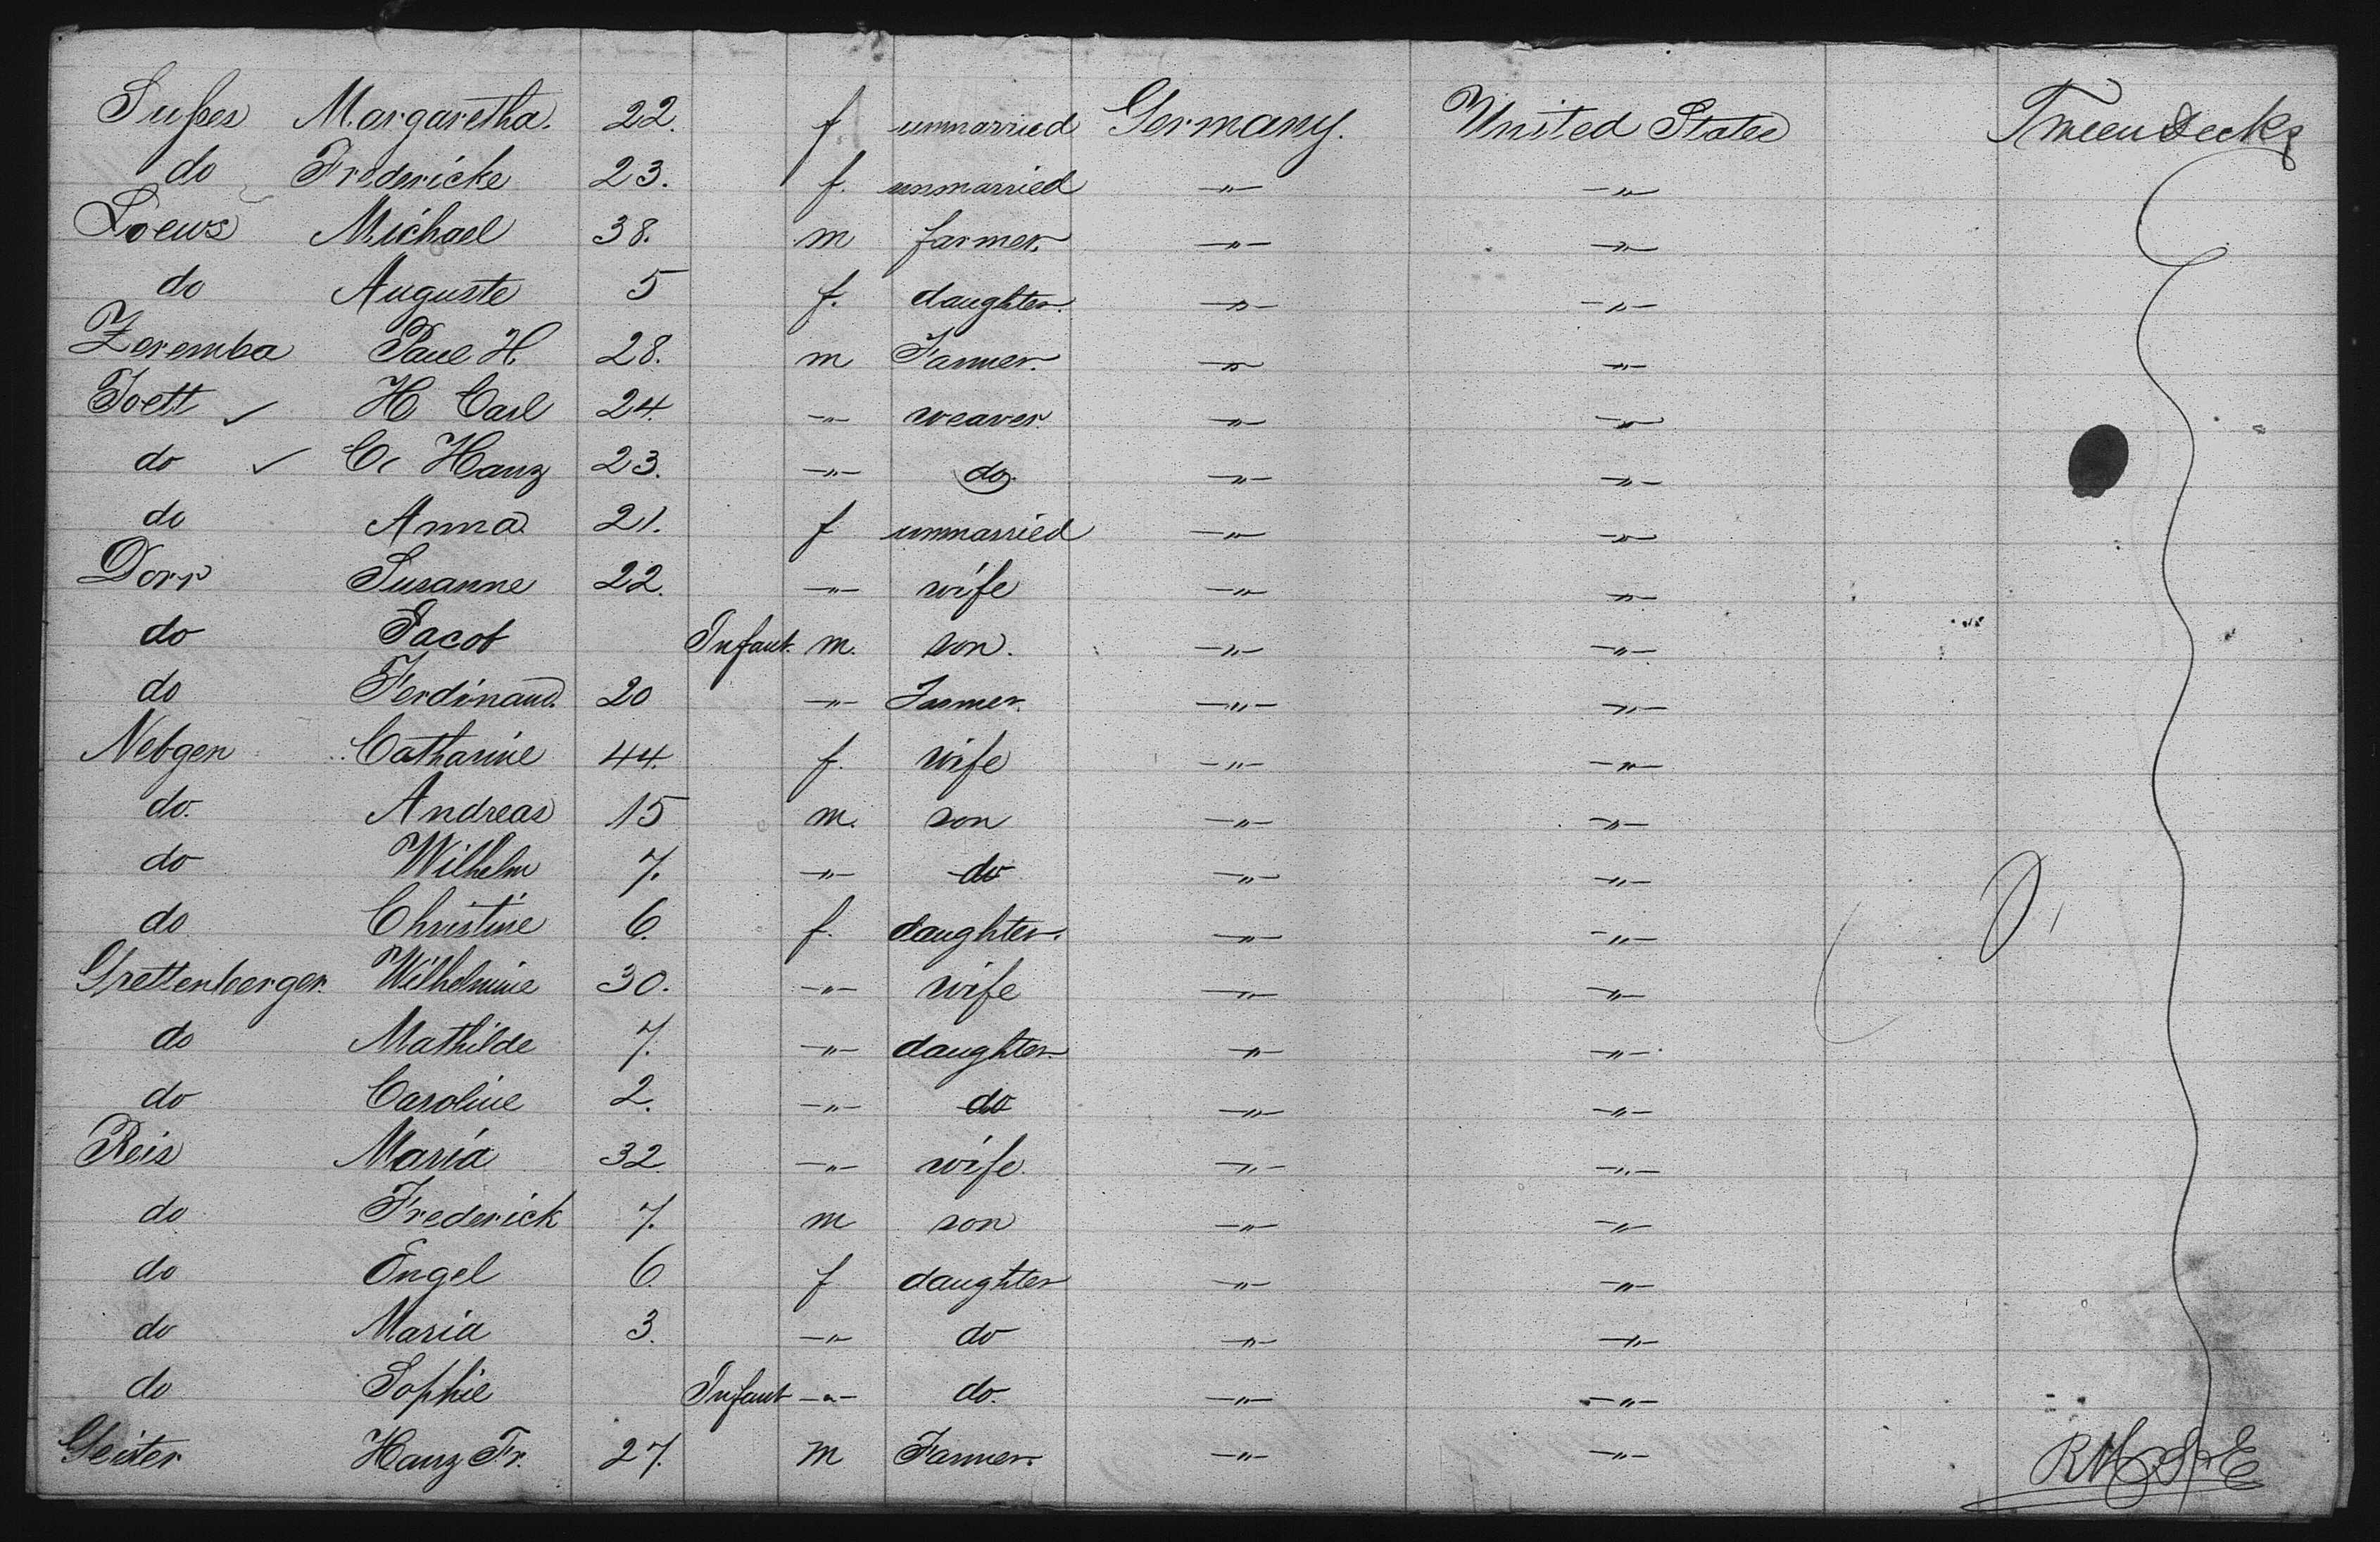 Supes Margaretha. 22. f unmarried Germany. United States Tweendecks
do Fredericke 23. f. unmarried —"— —"—
Loews Michael 38. m farmer. —"— —"—
do Auguste 5 f. daughter. —"— —"—
Zeremba Paul H. 28. m Farmer. —"— —"—
Toett ✓ H Carl 24. —"— weaver. —"— —"—
do ✓ C. Hanz 23. —"— do. —"— —"—
do Anna 21. f unmarried —"— —"—
Dorr Susanne 22. —"— wife —"— —"—
do Jacob Infant. m. son. —"— —"—
do Ferdinand. 20 —"— Farmer. —"— —"—
Nebgen Catharine 44. f. wife —"— —"—
do. Andreas 15 m. son —"— —"—
do Wilhelm 7. —"— do —"— —"—
do Christine 6. f. daughter. —"— —"—
Grettenberger. Wilhelmine 30. —"— wife —"— —"—
do Mathilde 7. —"— daughter —"— —"—
do Caroline 2. —"— do —"— —"—
Reis Maria 32. —"— wife. —"— —"—
do Frederick 7. m son —"— —"—
do Engel 6. f daughter —"— —"—
do Maria 3. —"— do —"— —"—
do Sophie Infant —"— do. —"— —"—
Geister Hanz Fr. 27. m Farmer. —"— —"—